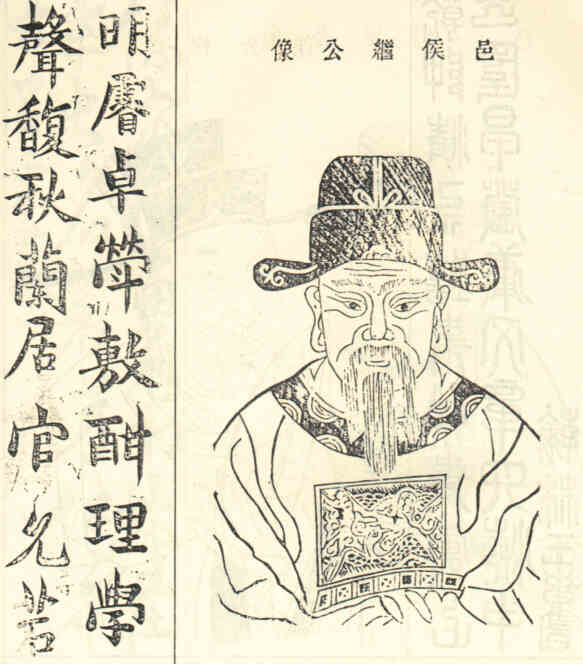 邑侯繼公像
明卓犖敷酣理學
聲馥秋蘭居官允